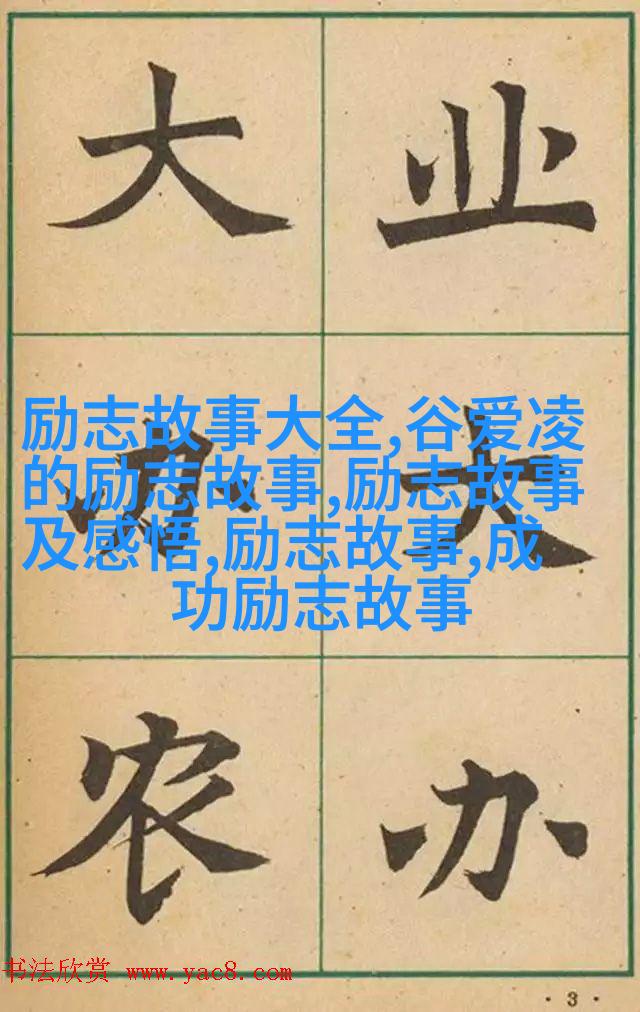 大 业
励志故事大全,谷爱凌
的励志故事,励志故事
及感悟,励志故事,成
功励志故事
办 大
农 办
书法欣赏 www.yac8.com
·3·